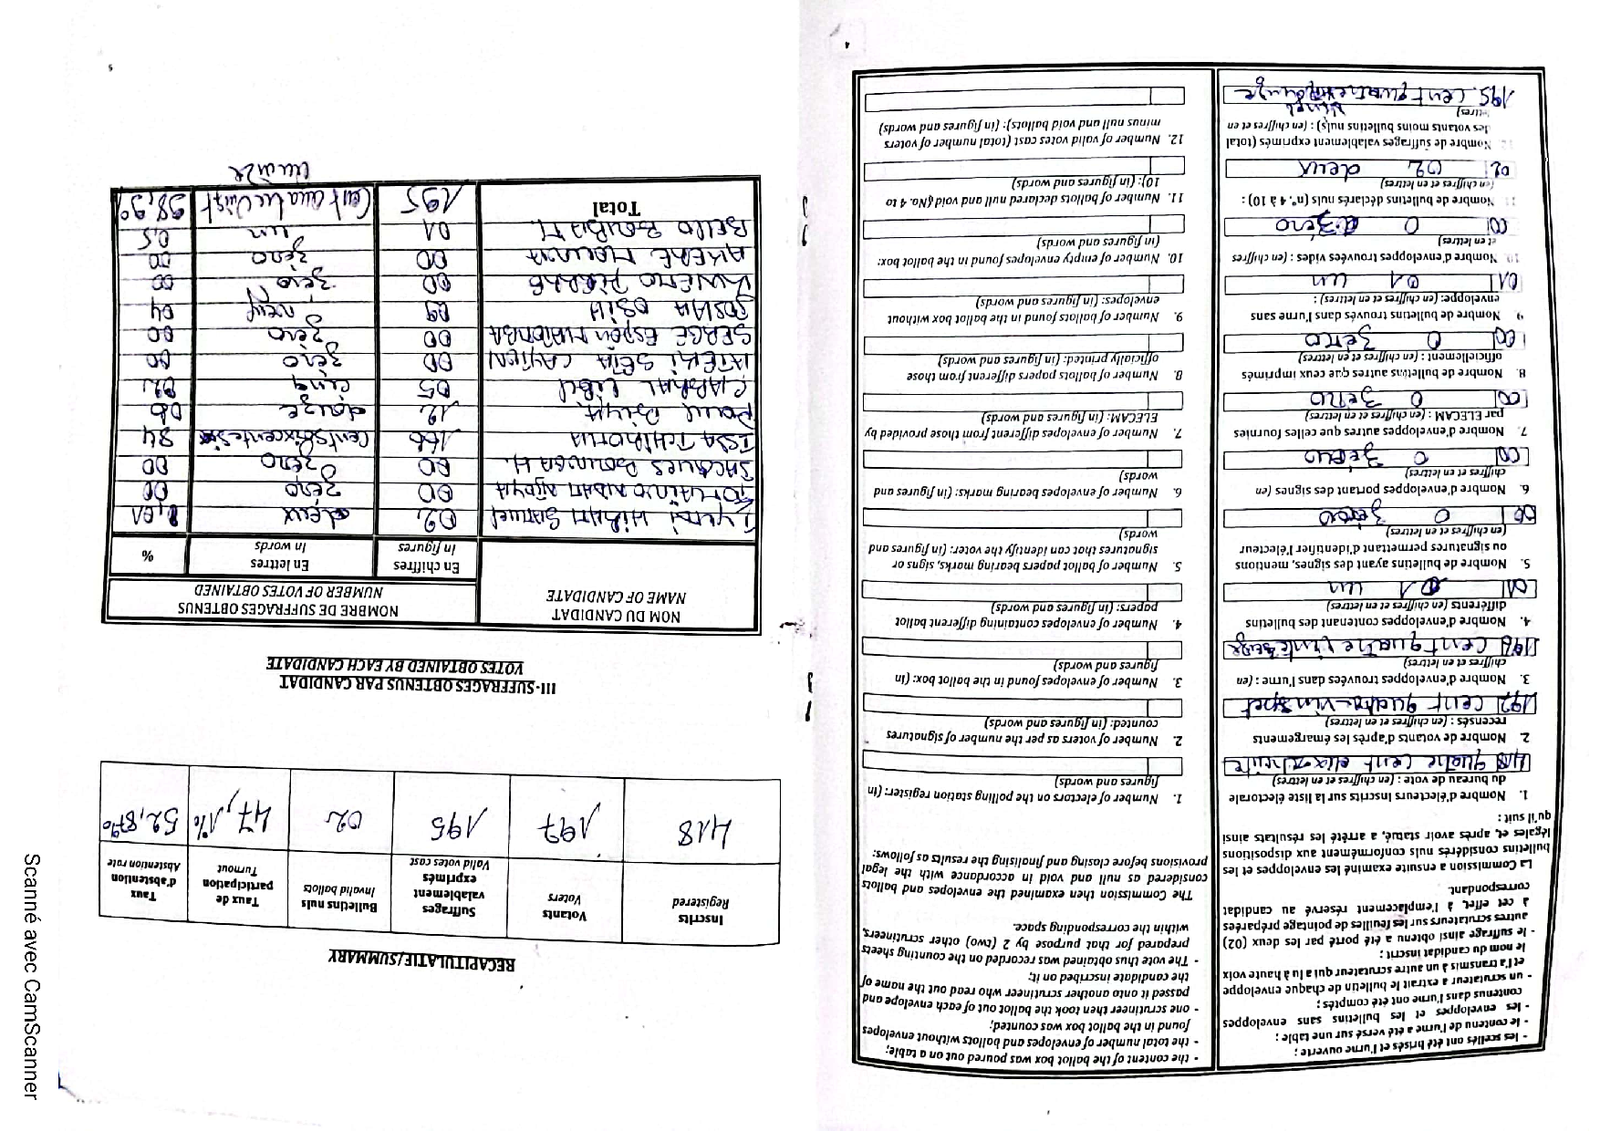 - les scellés ont été brisés et l'urne ouverte ;
- le contenu de l'urne a été versé sur une table ;
- les enveloppes et les bulletins sans enveloppes
contenus dans l'urne ont été comptés ;
- un scrutateur a extrait le bulletin de chaque enveloppe
et l'a transmis à un autre scrutateur qui a lu à haute voix
le nom du candidat inscrit ;
- le suffrage ainsi obtenu a été porté par les deux (02)
autres scrutateurs sur les feuilles de pointage préparées
à cet effet, à l'emplacement réservé au candidat
correspondant.
La Commission a ensuite examiné les enveloppes et les
bulletins considérés nuls conformément aux dispositions
légales et, après avoir statué, a arrêté les résultats ainsi
qu'il suit :
1. Nombre d'électeurs inscrits sur la liste électorale
du bureau de vote : (en chiffres et en lettres)
418 quatre cent dix-huit
2. Nombre de votants d'après les émargements
recensés : (en chiffres et en lettres)
197 cent quatre-vin spet
3. Nombre d'enveloppes trouvées dans l'urne : (en
chiffres et en lettres)
196 cent quatre
4. Nombre d'enveloppes contenant des bulletins
différents (en chiffres et en lettres)
01 01 un
5. Nombre de bulletins ayant des signes, mentions
ou signatures permettant d'identifier l'électeur
(en chiffres et en lettres)
00 0 zéro
6. Nombre d'enveloppes portant des signes (en
chiffres et en lettres)
00 0 zéro
7. Nombre d'enveloppes autres que celles fournies
par ELECAM : (en chiffres et en lettres)
00 0 zéro
8. Nombre de bulletins autres que ceux imprimés
officiellement : (en chiffres et en lettres)
00 0 zéro
9 Nombre de bulletins trouvés dans l'urne sans
enveloppe: (en chiffres et en lettres) :
01 01 un
10 Nombre d'enveloppes trouvées vides : (en chiffres
et en lettres)
00 0 zéro
11 Nombre de bulletins déclarés nuls (n°. 4 à 10) :
(en chiffres et en lettres)
02 02 deux
12 Nombre de Suffrages valablement exprimés (total
des votants moins bulletins nuls) : (en chiffres et en
lettres)
195 cent quatre vingt quinze
- the content of the ballot box was poured out on a table;
- the total number of envelopes and ballots without envelopes
found in the ballot box was counted;
- one scrutineer then took the ballot out of each envelope and
passed it onto another scrutineer who read out the name of
the candidate inscribed on it;
- The vote thus obtained was recorded on the counting sheets
prepared for that purpose by 2 (two) other scrutineers,
within the corresponding space.
The Commission then examined the envelopes and ballots
considered as null and void in accordance with the legal
provisions before closing and finalising the results as follows:
1. Number of electors on the polling station register: (in
figures and words)
2. Number of voters as per the number of signatures
counted: (in figures and words)
3. Number of envelopes found in the ballot box: (in
figures and words)
4. Number of envelopes containing different ballot
papers: (in figures and words)
5. Number of ballot papers bearing marks, signs or
signatures that can identify the voter: (in figures and
words)
6. Number of envelopes bearing marks: (in figures and
words)
7. Number of envelopes different from those provided by
ELECAM: (in figures and words)
8. Number of ballots papers different from those
officially printed: (in figures and words)
9. Number of ballots found in the ballot box without
envelopes: (in figures and words)
10. Number of empty envelopes found in the ballot box:
(in figures and words)
11. Number of ballots declared null and void (No. 4 to
10): (in figures and words)
12. Number of valid votes cast (total number of voters
minus null and void ballots): (in figures and words)
RECAPITULATIF/SUMMARY
Inscrits Registered | Votants Voters | Suffrages valablement exprimés Valid votes cast | Bulletins nuls Invalid ballots | Taux de participation Turnout | Taux d'abstention Abstention rate
418 | 197 | 195 | 02 | 47,1% | 52,87%
III-SUFFRAGES OBTENUS PAR CANDIDAT
VOTES OBTAINED BY EACH CANDIDATE
NOM DU CANDIDAT NAME OF CANDIDATE | NOMBRE DE SUFFRAGES OBTENUS NUMBER OF VOTES OBTAINED
En chiffres In figures | En lettres In words | %
HIRAM SAMUEL | 02 | deux | 1,01
TOMAINO NDAM NJOYA | 00 | zéro | 00
JACQUES BOUNGAH. | 00 | zéro | 00
ISSA TCHIROMA | 166 | | 84
Paul Biya | 12 | douze | 06
CABRAL LIBII | 05 | cinq | 02
IATERI SEIA CAVTION | 00 | zéro | 00
SERGE ESPOIR MATOMBA | 00 | zéro | 00
JOSHUA OSIH | 09 | neuf | 04
KWEMO PIERRE | 00 | zéro | 00
AKERE MOUNA | 00 | zéro | 00
BELLO BOUBA M. | 01 | un | 0,5
Total | 195 | Cent quatre vingt quinze | 98,9%
Scanné avec CamScanner